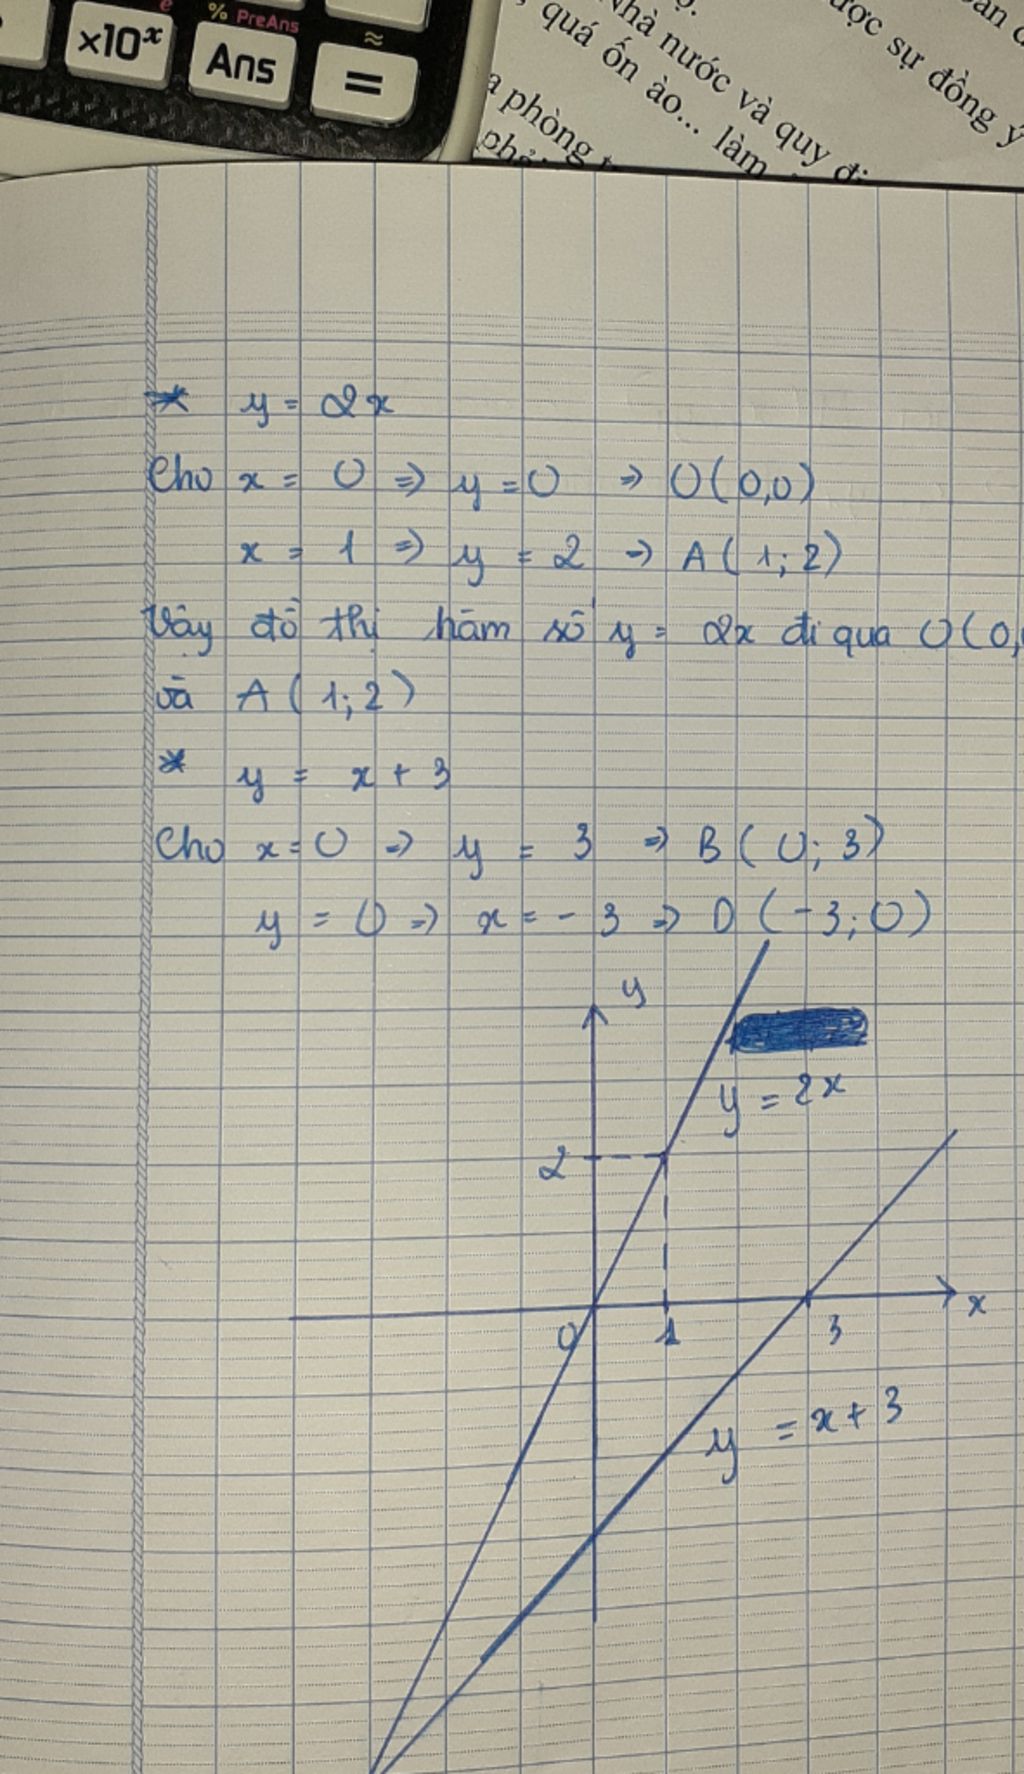 e
% PreAns
≈
×10ˣ
Ans
=
Nhà nước và quy đị
quá ốn ào... làm
a phòng
ược sự đồng ý
* y = 2x
Cho x = 0 => y = 0 => O(0,0)
x = 1 => y = 2 => A(1;2)
Vậy đồ thị hàm số y = 2x đi qua O(0,
và A(1;2)
* y = x + 3
Cho x = 0 => y = 3 => B(0;3)
y = 0 => x = -3 => D(-3;0)
y
y = 2x
2
0
1
3
x
y = x + 3